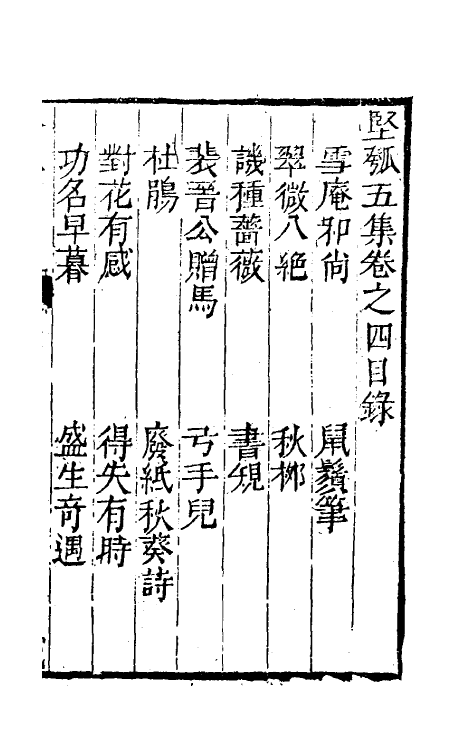 堅瓠五集卷之四目錄
雪庵和尙　鼠鬚筆
翠微八絶　秋柳
譏種薔薇　書規
裴晉公贈馬　丐手兒
杜鵑　廢紙秋葵詩
對花有感　得失有時
功名早暮　盛生奇遇